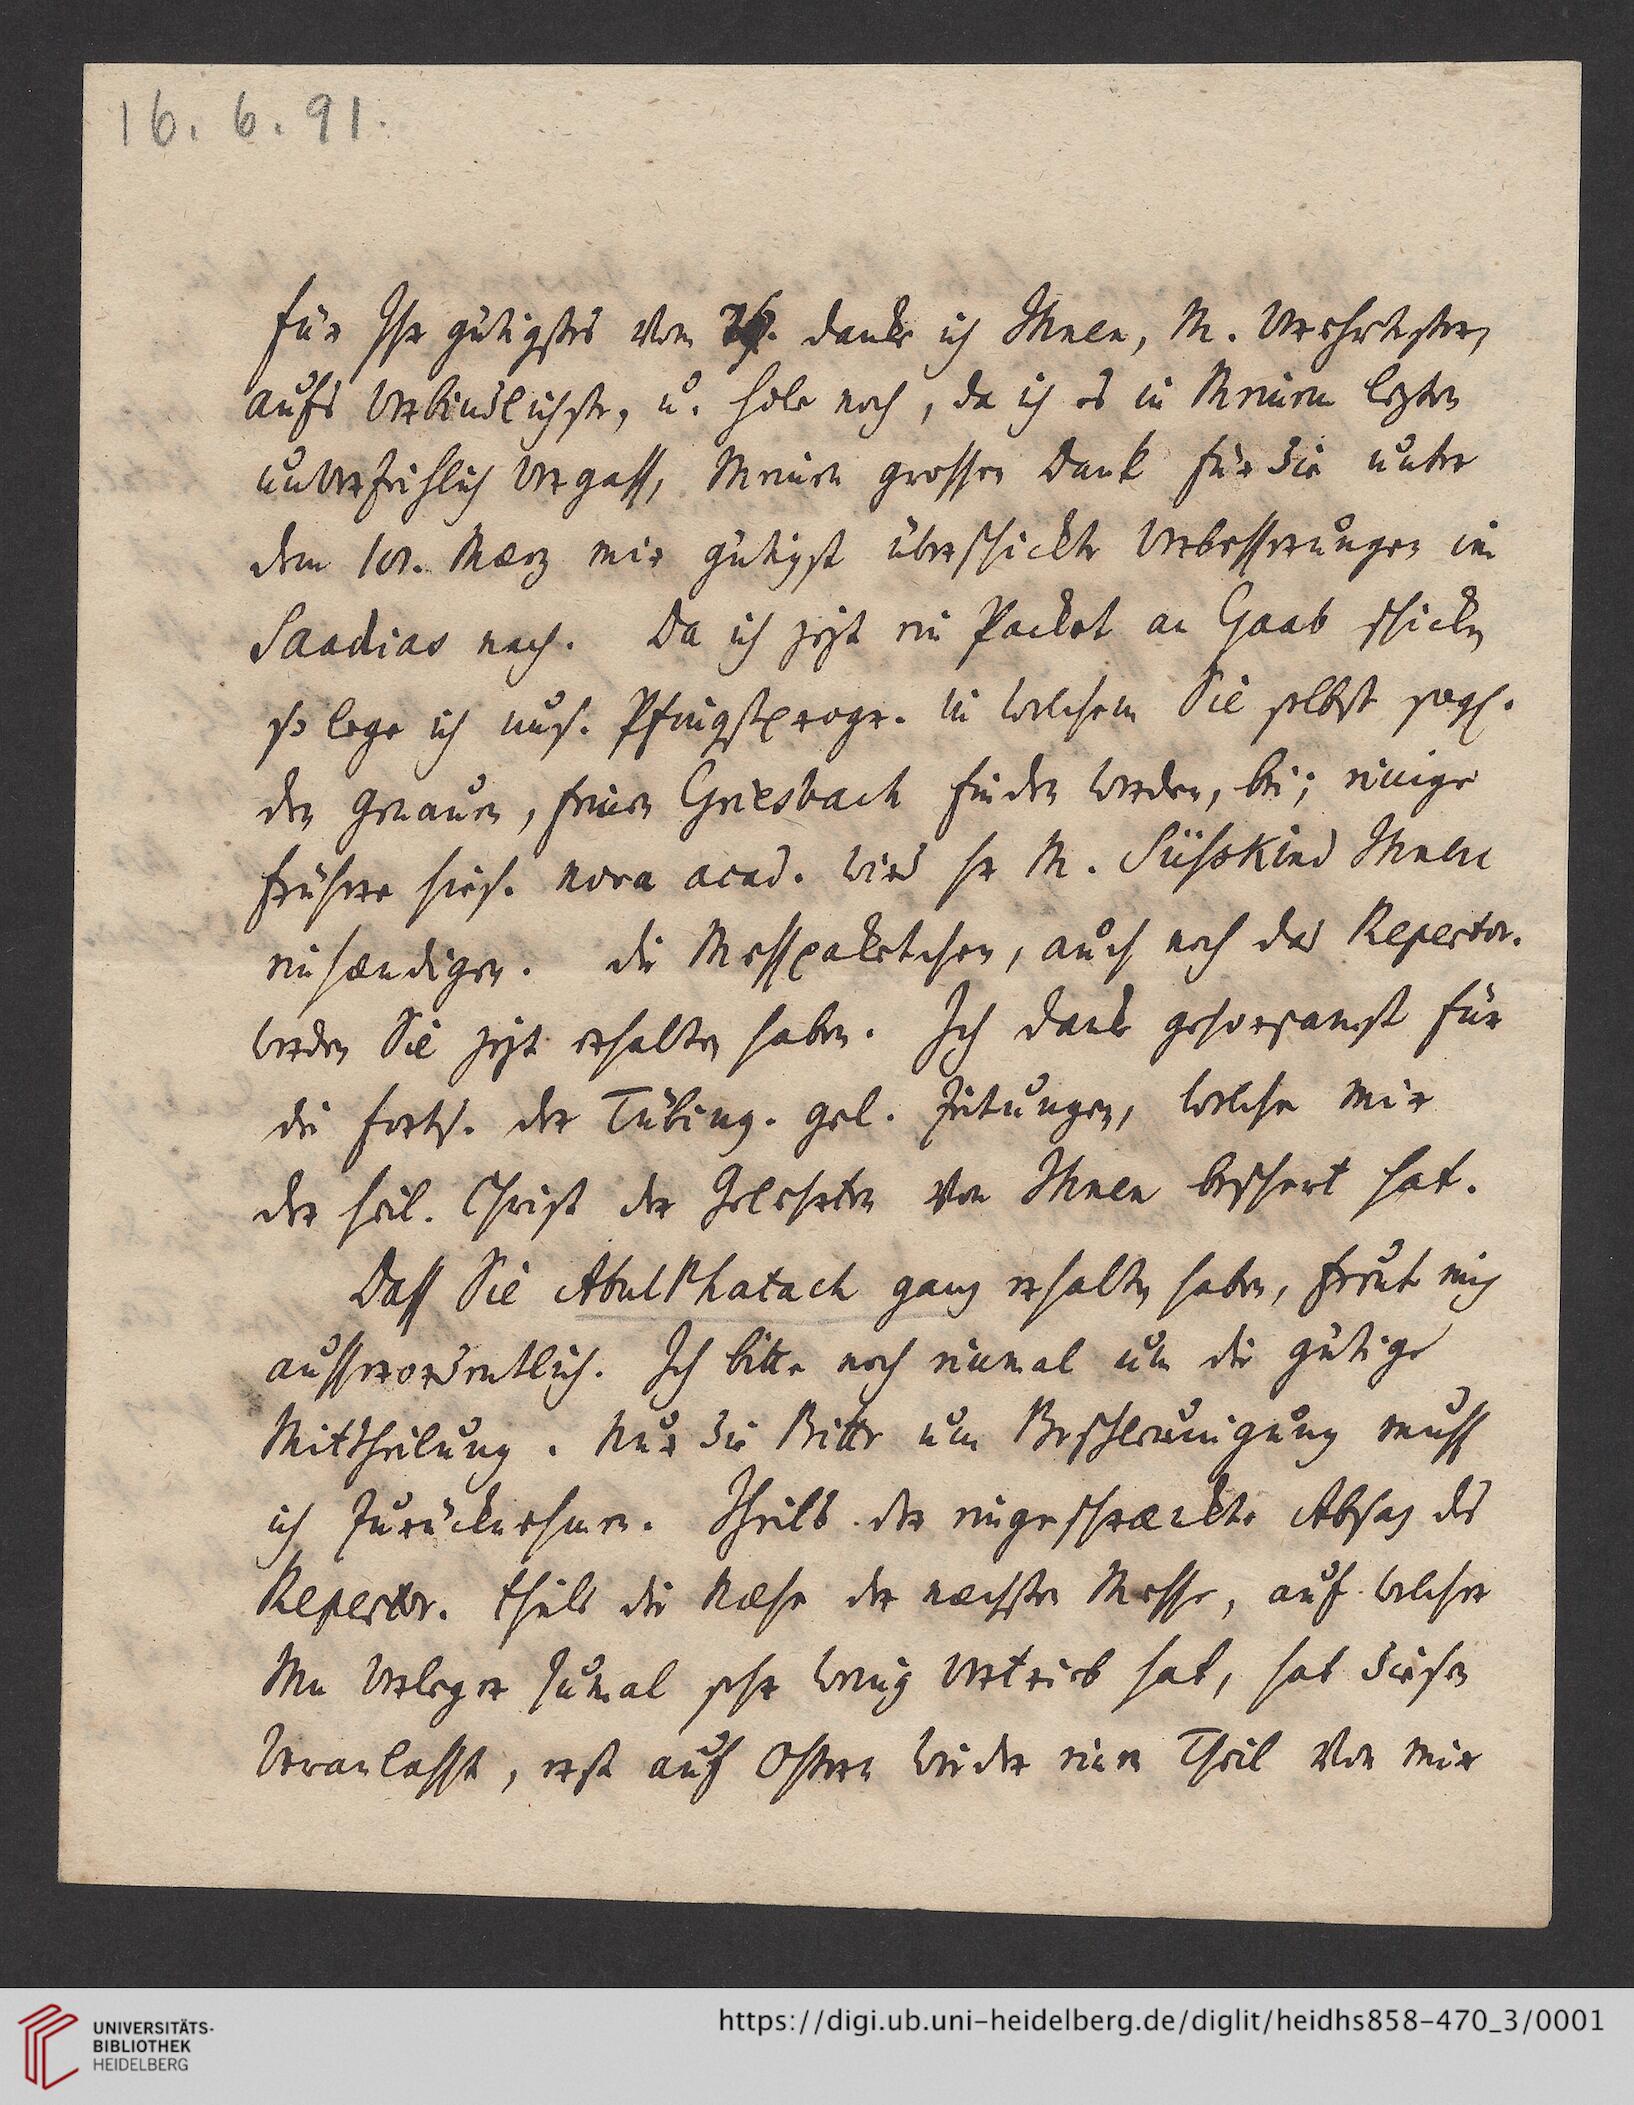 16. 6. 91.
Für Ihr gütigstes vom danke ich Ihnen, M. Verehrtester,
aufs Verbindlichste, u. hole noch, da ich es in Meinem lezten
unverzeihlich vergass, Meinen grossen Dank für die unter
dem März mir gütigst überschickte Verbesserungen im
Saadias nach. Da ich jezt ein Packet an Gaab schicke,
so lege ich uns. Pfingstprogr. in welchem Sie selbst sogl.
den genauen, feinen Griesbach finden werden, bei; einige
frühere hies. nova acad. wird Hr M. Süsskind Ihnen
einhændigen. Die Messpaketchen, auch noch das Repertor.
werden Sie jezt erhalten haben. Ich danke gehorsamst für
die Forts. der Tübing. gel. Zeitungen, welche mir
der heil. Christ der Gelehrten von Ihnen beschert hat.
Dass Sie Abulphatach ganz erhalten haben, freut mich
ausserordentlich. Ich bitte noch einmal um die gütige
Mittheilung. Nur die Bitte um Beschleunigung muss
ich zurücknehmen. Theils der eingeschrænkte Absaz des
Repertor. theils die Næhe der næchsten Messe, auf welcher
Mn Verleger zumal sehr wenig Vertrieb hat, hat diesen
veranlasst, erst auf Ostern wieder einen Theil von mir
UNIVERSITÄTS-
BIBLIOTHEK
HEIDELBERG
https://digi.ub.uni-heidelberg.de/diglit/heidhs858-470_3/0001